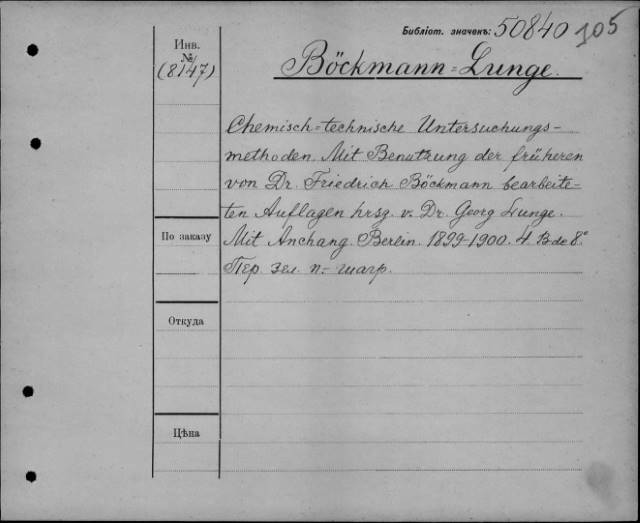 Библіот. значекъ: 50840 105
Инв.
№
(8147)
Böckmann-Lunge.
Chemisch-technische Untersuchungs-
methoden. Mit Benutzung der früheren
von Dr. Friedrich Böckmann bearbeite-
ten Auflagen hrsg. v. Dr. Georg Lunge.
Mit Anchang. Berlin. 1899-1900. 4 Bde 8°.
Пер. зел. п.- шагр.
По заказу
Откуда
Цѣна